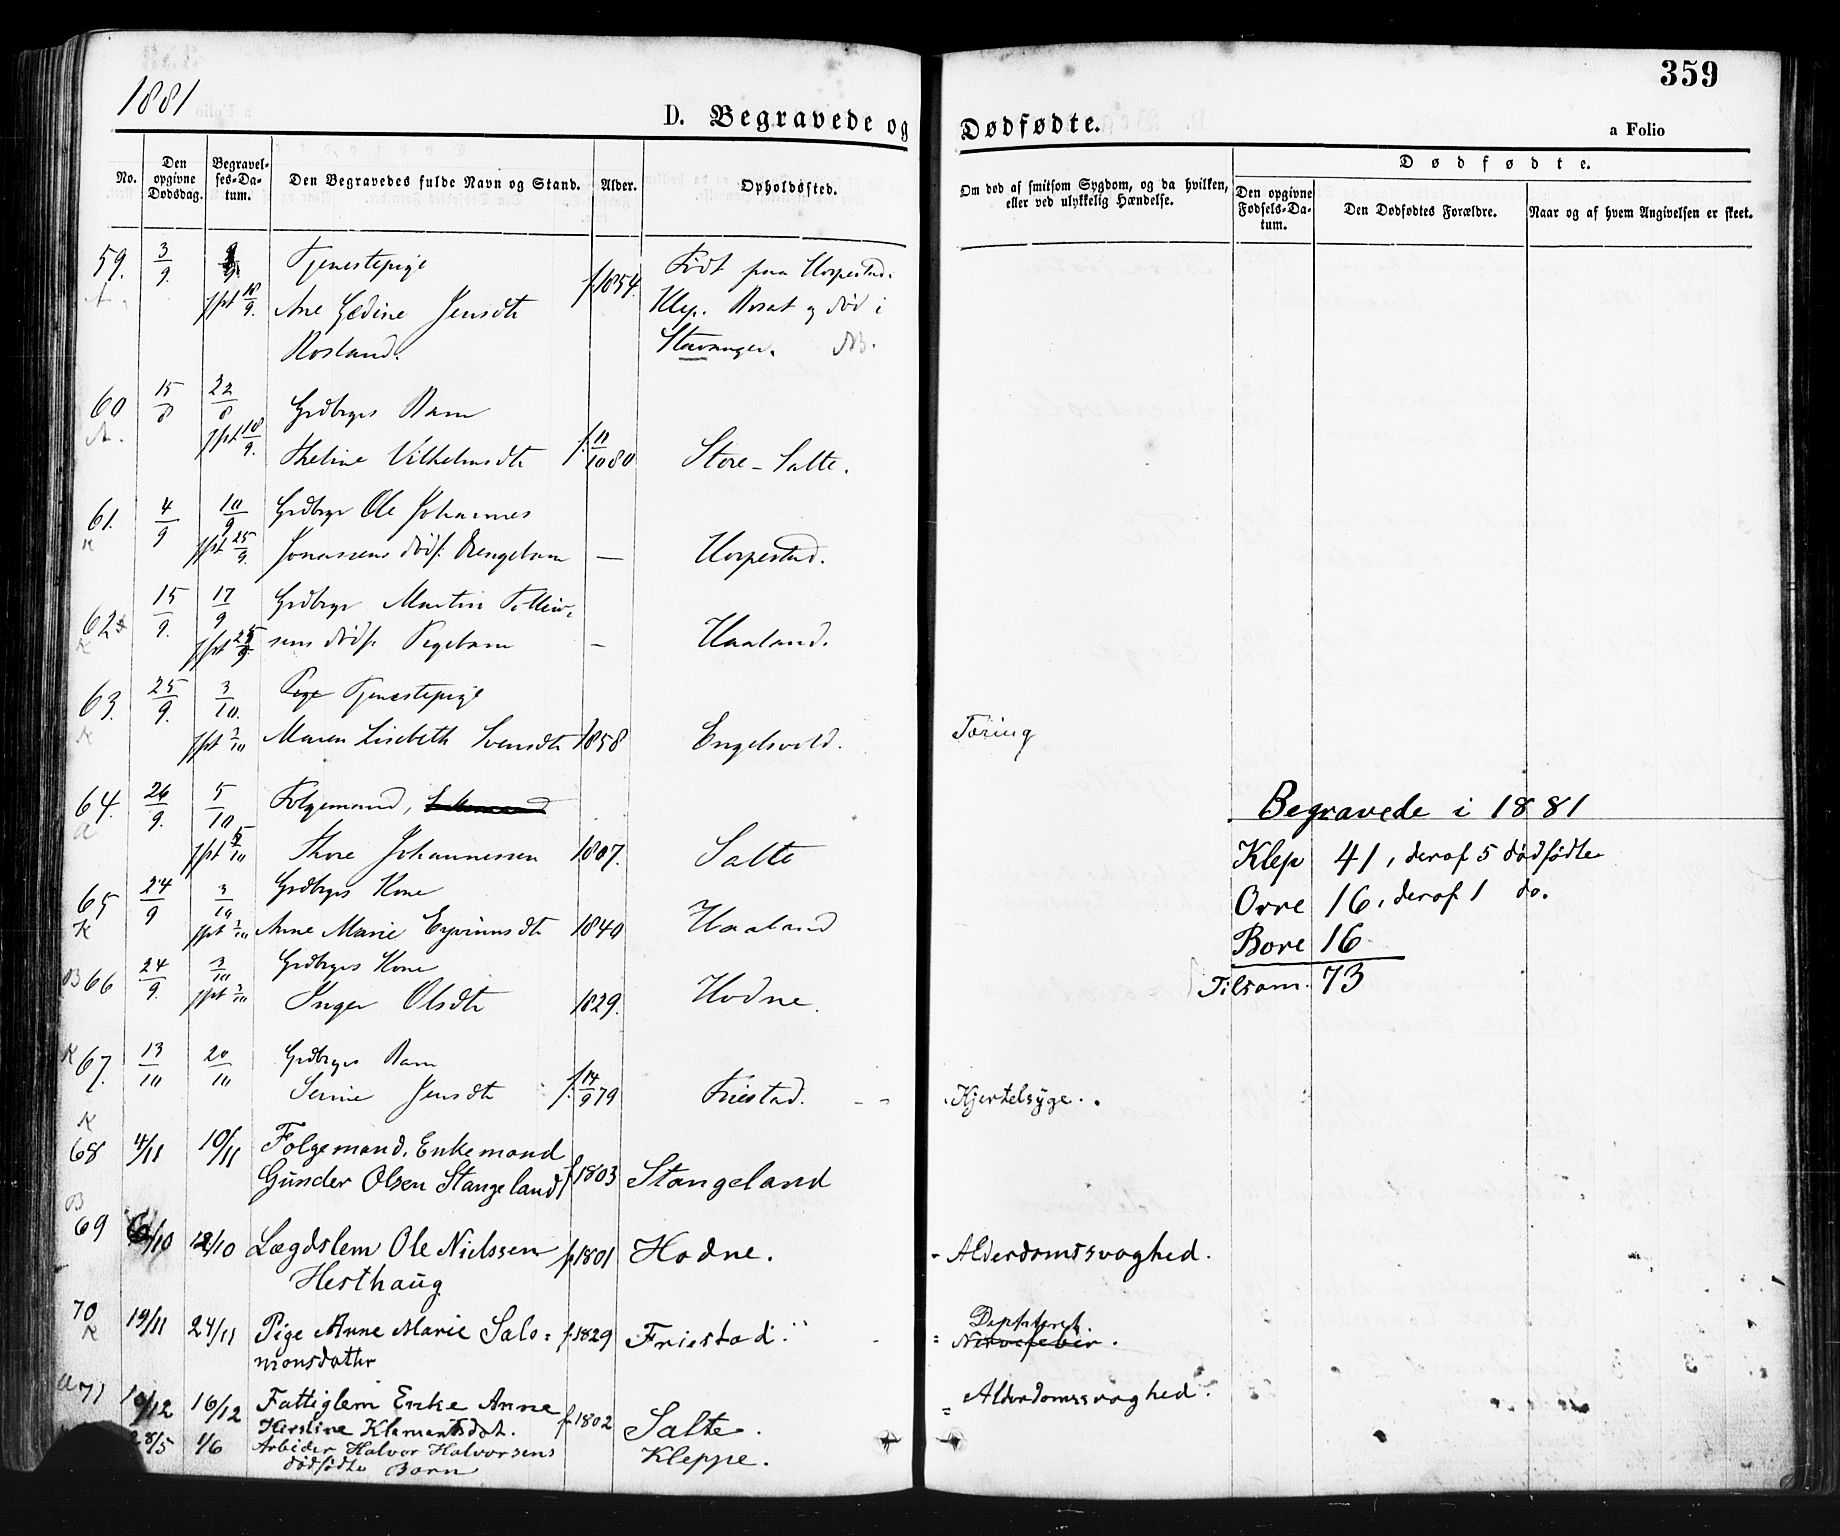 359
1881
D. Begravede og Dødfødte.
a Folio
No.
Den opgivne Dødsdag.
Begravel-ses-Da-tum.
Den Begravedes fulde Navn og Stand.
Alder.
Opholdssted.
Om død af smitsom Sygdom, og da hvilken,
eller ved ulykkelig Hændelse.
Dødfødte.
Den opgivne Fødsels-Da-tum.
Den Dødfødtes Forældre.
Naar og af hvem Angivelsen er skeet.
59. 3/9 Tjenestepige
jfpt 18/9. Ane Gædine Jensdtr f. 1854. Født paa Horpestad.
Klep. Bosat og død i
Rosland. Stavanger. NB.
60 15/8 22/8 Grdbrgrs Barn
jfpt 18/9. Theline Vilhelmsdtr f. 11/10 80 Store-Salte.
61. 4/9 10/9 Grdbrgr Ole Johannes
K jfpt 25/9. Jonassens dødf. Drengebarn — Horpestad.
62 15/9. 17/9 Grdbrgr Martin Tollev-
K jfpt 25/9. sens dødf. Pigebarn – Haaland.
63. 25/9. 3/10. Pige Tjenestepige
K jfpt 3/10 Maren Lisebeth Svensdtr 1858 Engelsvold. Tæring
64. 26/9. 5/10 Folgemand,
jfpt 5/10 Thore Johannessen 1807. Salte
65 24/9 3/10 Grdbrgrs Kone
K jfpt 3/10 Anne Marie Eyvinnsdtr 1840 Haaland
B 66 24/9. 3/10 Grdbrgrs Kone
jfpt 3/10 Inger Olsdtr 1829. Hodne.
K 67. 13/10 20/10 Grdbrgrs Barn
Serine Jensdtr f. 14/9 79 Friestad. - - Kjertelsyge.
K
68 4/11 10/11 Folgemand, Enkemand
Gunder Olsen Stangeland f 1803 Stangeland
B
69 6/10 12/10 Lægdslem Ole Nielssen f 1801 Hodne. - Alderdomssvaghed.
Hesthaug
70 19/11 24/11 Pige Anne Marie Salo= f. 1829 Friestad. =
K monsdatter
Nervefeber.
a 71 10/12 16/12 Fattiglem Enke Anne
Kirstine Klementsdat. f. 1802 Salte. = Alderdomssvaghed.
28/5 1/6 Arbeider Halvor Halvorsens
dødfødte Barn Kleppe.
Begravede i 1881
Klep 41, deraf 5 dødfødte
Orre 16, deraf 1 do.
Bore 16
Tilsam. 73